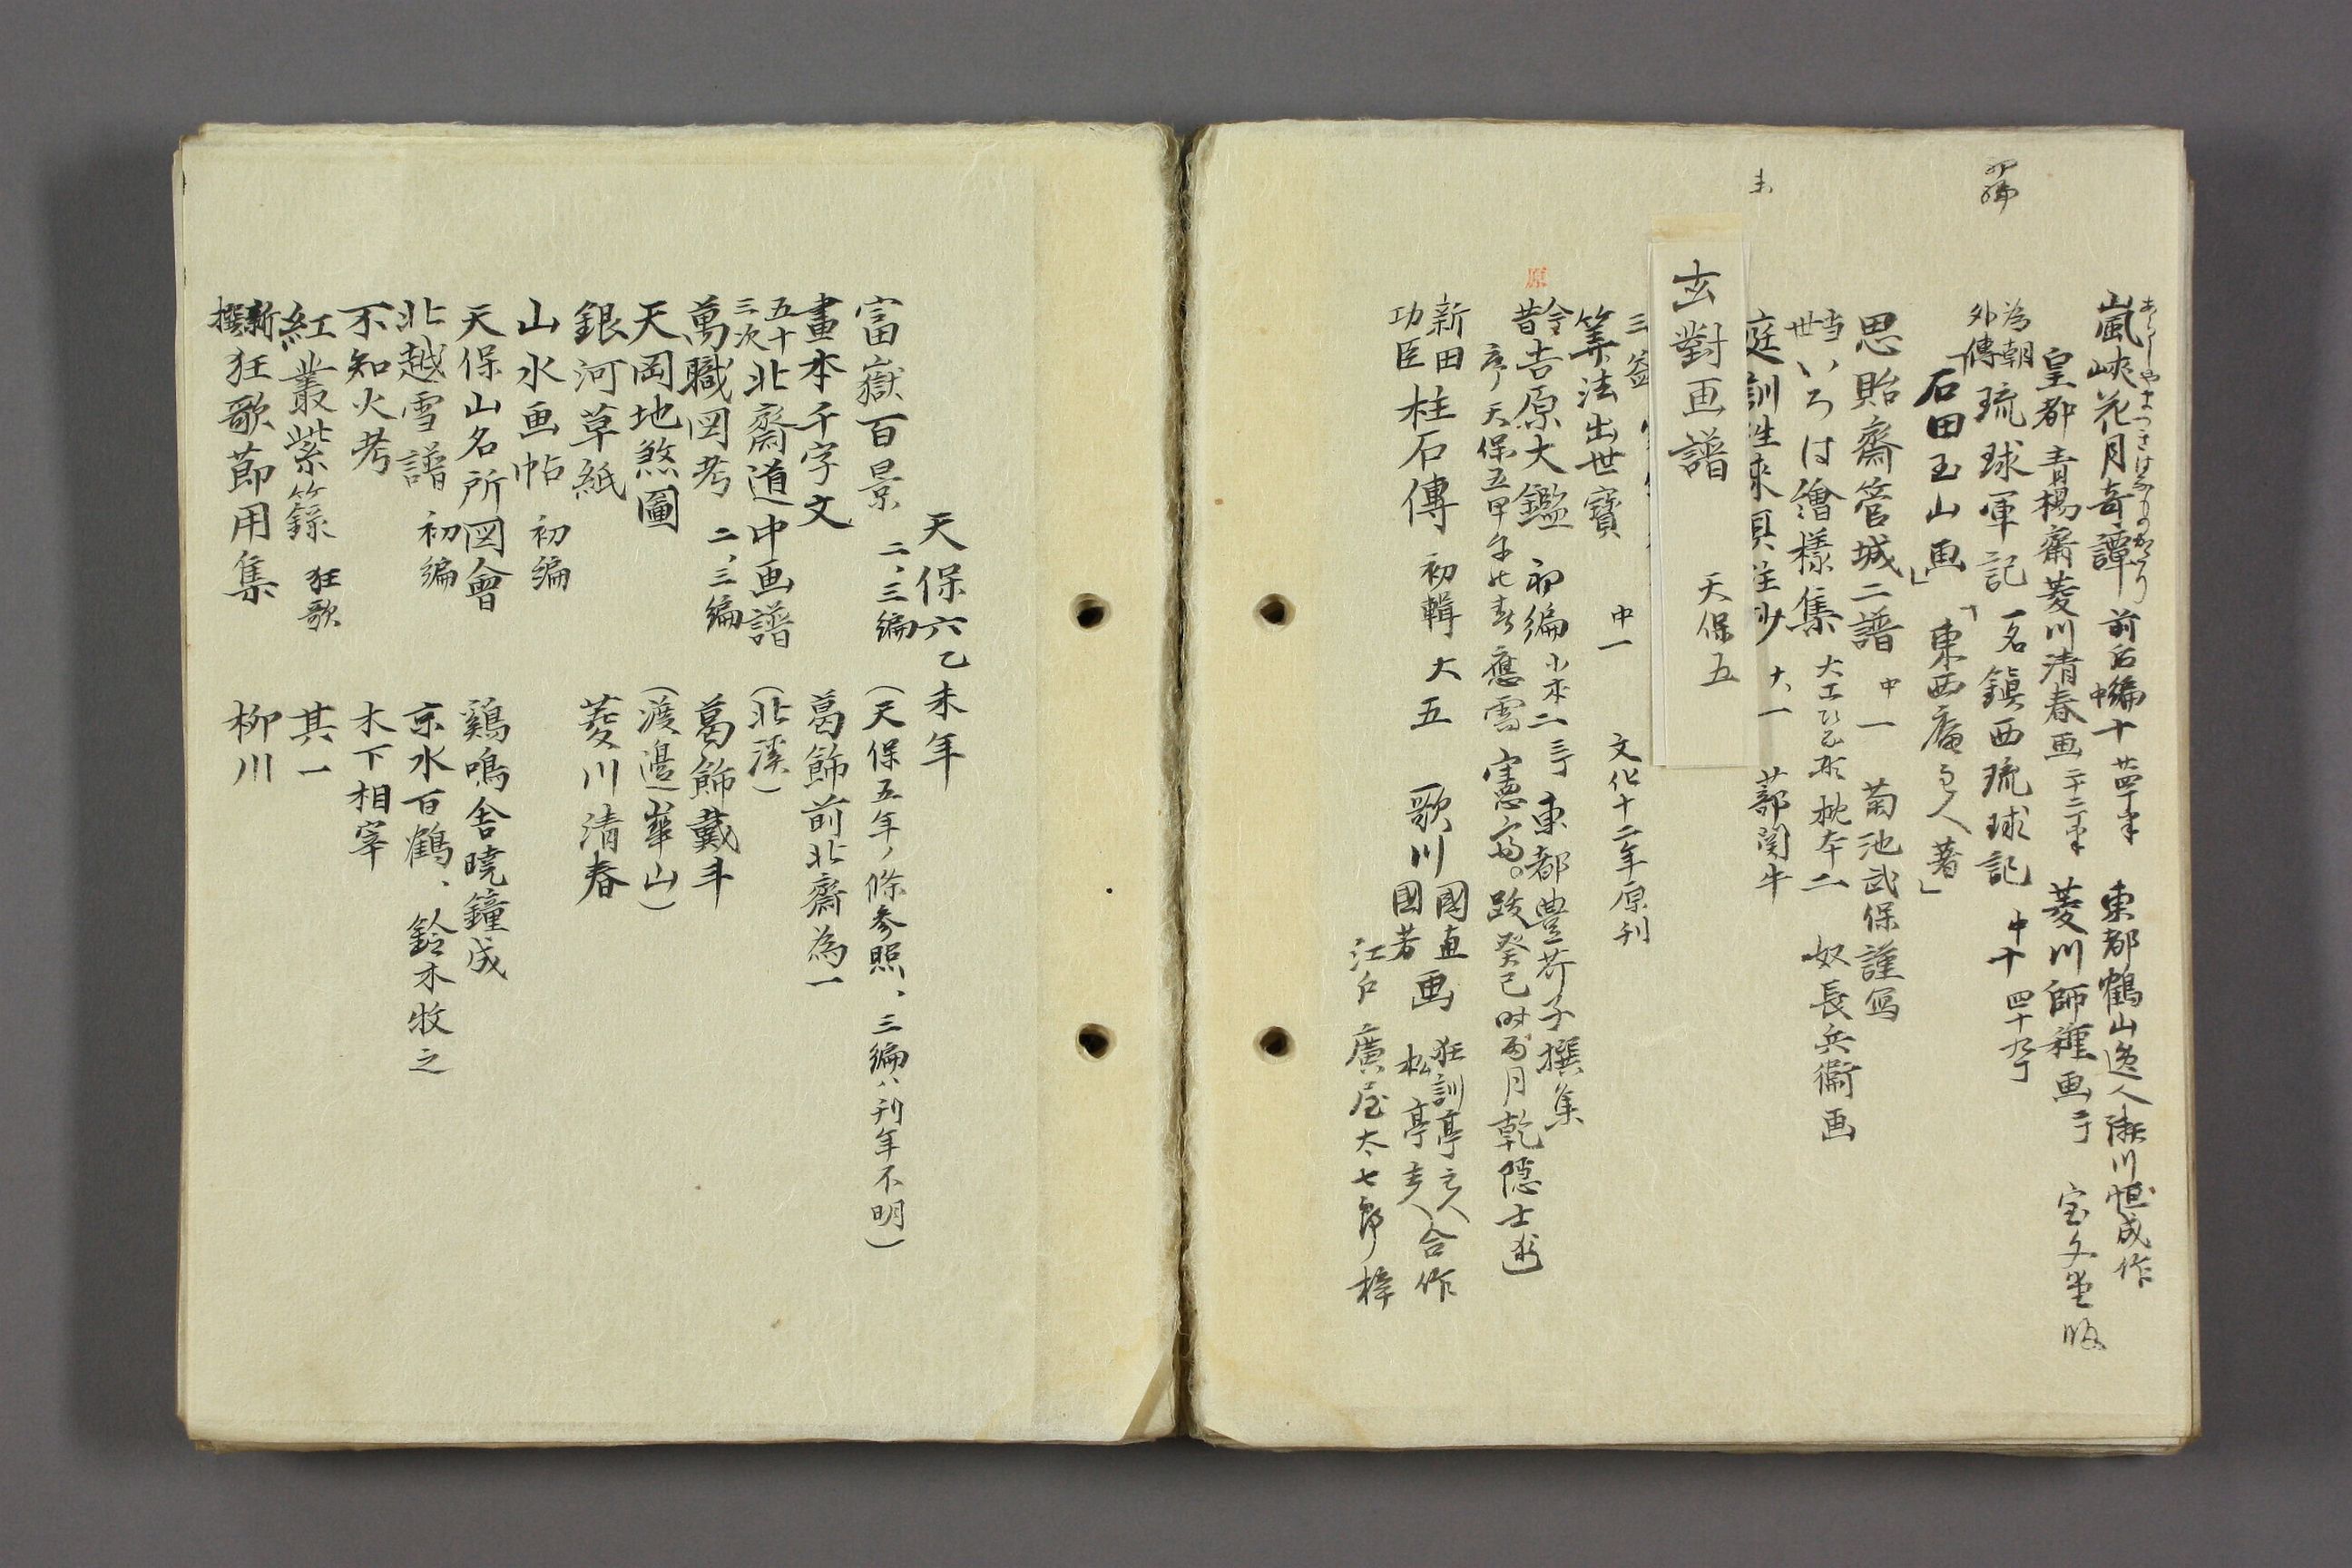 嵐峽花月奇譚 前后編 中十 東都鶴山逸人瀬川恒成作
皇都青楊齋菱川清春画 菱川師種画 宝文堂版
為朝外傳 琉球軍記 一名鎮西琉球記 中十 四十九丁
「石田玉山画」 「東西庵主人著」
思貽齋管城二譜 中一 菊池武保謹写
当世いろは繪様集 枕本二 奴長兵衛画
庭訓往来 大一 蔀関牛
玄對画譜 天保五
筭法出世寶 中一 文化十二年原刊
原
今昔吉原大鑑 初編 小本二 東都豊芥子撰集
序天保五甲午 應需 跋癸巳 月乾隠士述
新田功臣 柱石傳 初輯 大五 歌川國直 國芳 画 狂訓亭主人 松亭主人 合作
江戸 廣屋太七郎梓
天保六乙未年
富嶽百景 二、三編 (天保五年ノ條参照、三編ハ刊年不明)
畫本千字文 葛飾前北齋為一
五十三次 北齋道中画譜 (北溪)
萬職図考 二、三編 葛飾戴斗
天岡地煞圖 (渡邉崋山)
銀河草紙 菱川清春
山水画帖 初編
天保山名所図會 鷄鳴舎暁鐘成
北越雪譜 初編 京水百鶴、鈴木牧之
不知火考 木下相宰
紅叢紫籙 狂歌 其一
新撰 狂歌節用集 柳川